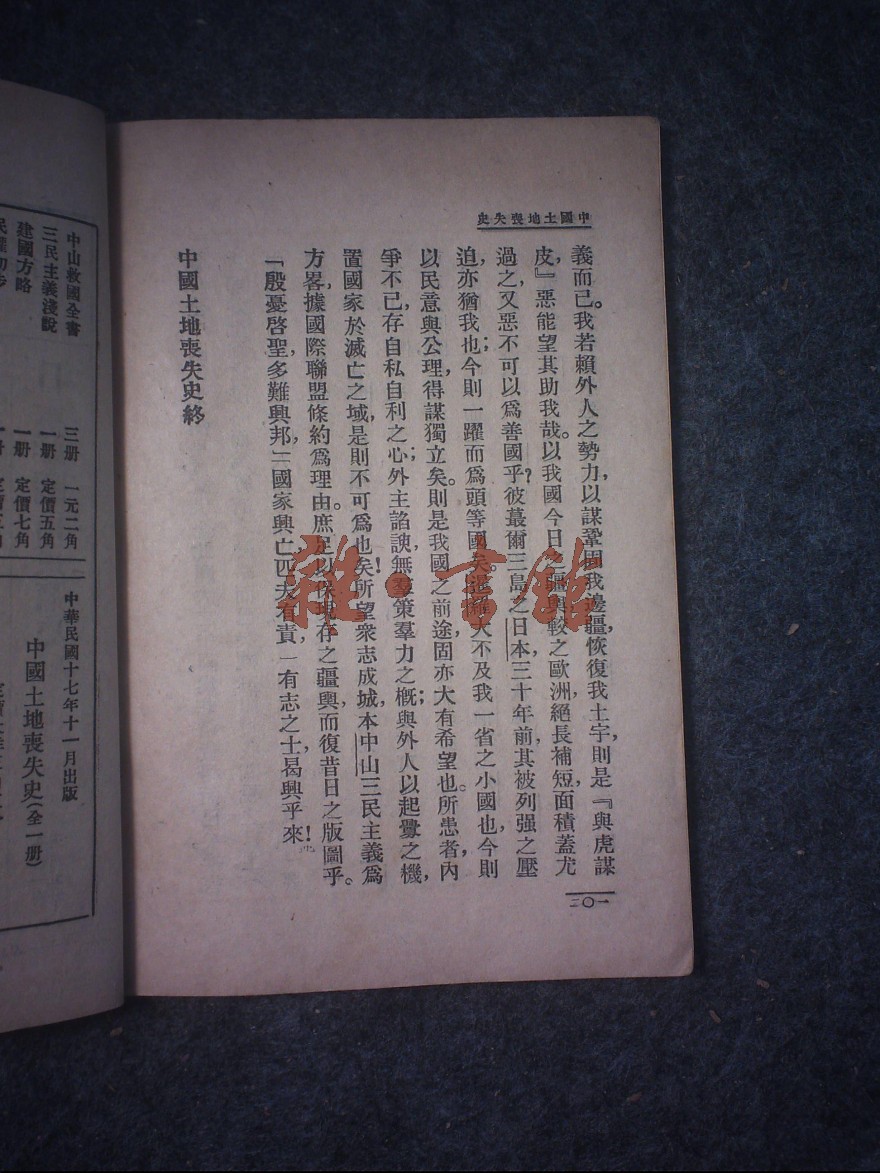 中國土地喪失史
義而已。我若賴外人之勢力,以謀鞏固我邊疆,恢復我土宇,則是『與虎謀
皮,』惡能望其助我哉。以我國今日之疆輿,較之歐洲,絕長補短,面積蓋尤
過之,又惡不可以爲善國乎?彼蕞爾三島之日本,三十年前,其被列强之壓
迫,亦猶我也;今則一躍而爲頭等國矣。大不及我一省之小國也,今則
以民意與公理,得謀獨立矣。則是我國之前途,固亦大有希望也。所患者,內
爭不已,存自私自利之心;外主諂諛,無羣策羣力之概;與外人以起釁之機,
置國家於滅亡之域,是則不可爲也!矣所望衆志成城,本中山三民主義爲
方畧,據國際聯盟條約爲理由。庶足以保現存之疆輿,而復昔日之版圖乎。
「殷憂啓聖,多難興邦,」「國家興亡,匹夫有責,」有志之士,曷興乎來!
中國土地喪失史終
一〇二
中山救國全書 三册 一元二角
三民主義淺說 一册 定價五角
建國方略 一册 定價七角
中華民國十七年十一月出版
中國土地喪失史(全一册)
雜·書館